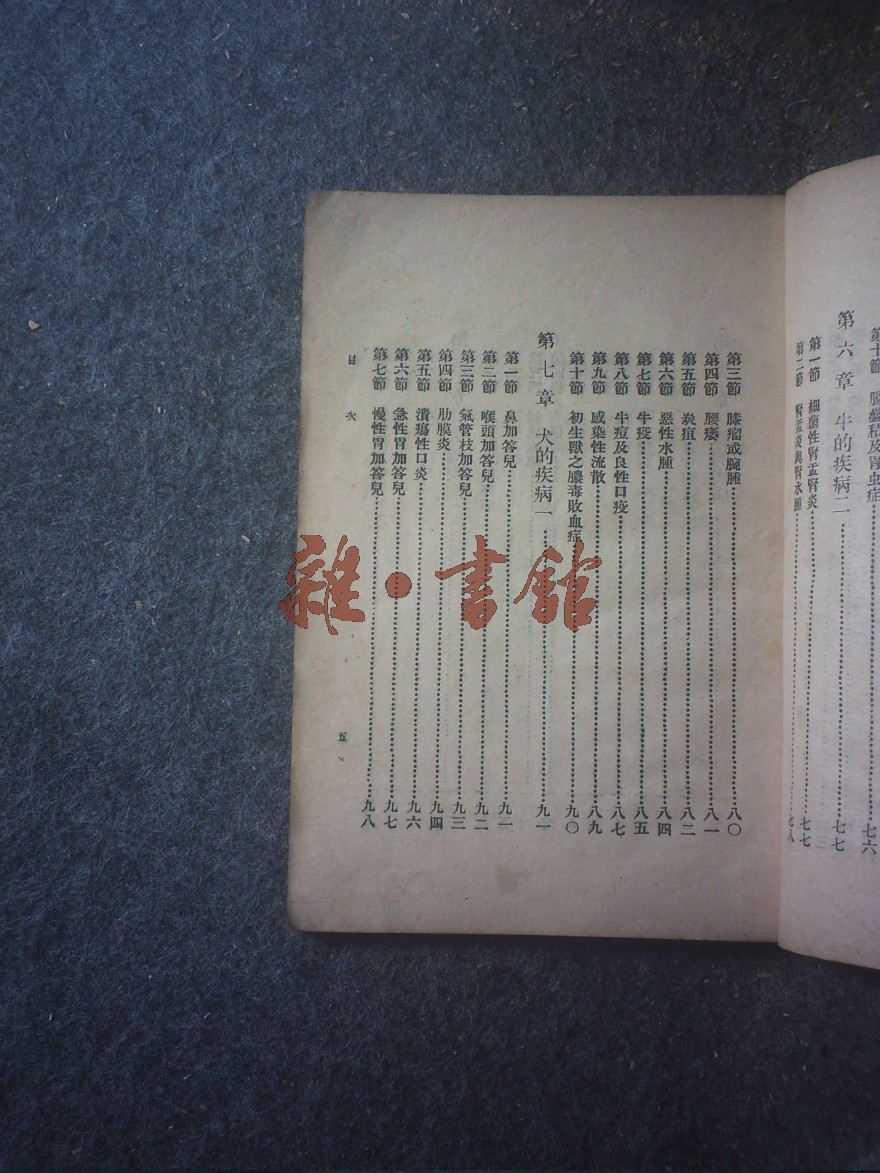 第十節 腸蠱精及胃虫症………七六
第六章 牛的疾病二………七七
第一節 細菌性腎盂腎炎………七七
第二節 腎盂炎與腎水腫………七八
第三節 膝瘤或腕腫………八〇
第四節 腰痿………八一
第五節 炭疽………八二
第六節 惡性水腫………八四
第七節 牛疫………八五
第八節 牛痘及良性口疫………八七
第九節 感染性流散………八九
第十節 初生獸之膿毒敗血症………九〇
第七章 犬的疾病一………九一
第一節 鼻加答兒………九一
第二節 喉頭加答兒………九二
第三節 氣管枝加答兒………九三
第四節 肋膜炎………九四
第五節 潰瘍性口炎………九六
第六節 急性胃加答兒………九七
第七節 慢性胃加答兒………九八
目次
五
雜·書館